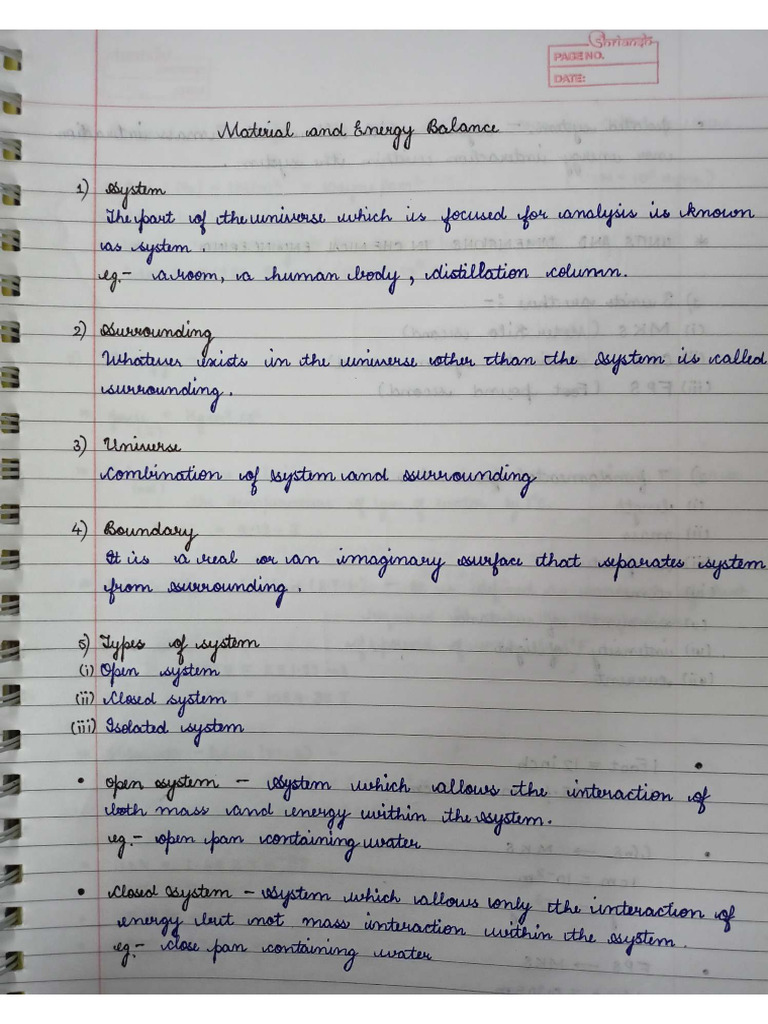 Shriansh
PAGE NO.
DATE:
Material and Energy Balance
1) System
The part of the universe which is focused for analysis is known
as system.
eg.- a room, a human body, distillation column.
2) Surrounding
Whatever exists in the universe other than the system is called
surrounding.
3) Universe
Combination of system and surrounding
4) Boundary
It is a real or an imaginary surface that separates system
from surrounding.
5) Types of system
(i) Open system
(ii) Closed system
(iii) Isolated system
• Open system - System which allows the interaction of
both mass and energy within the system.
eg.- open pan containing water
• Closed system - System which allows only the interaction of
energy but not mass interaction within the system.
eg.- close pan containing water